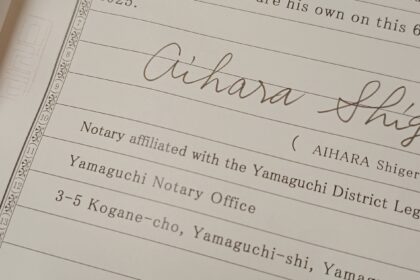 are his own on this 6
2025.
Aihara Shig
( AIHARA Shiger
Notary affiliated with the Yamaguchi District Leg
Yamaguchi Notary Office
3-5 Kogane-cho, Yamaguchi-shi, Yamag